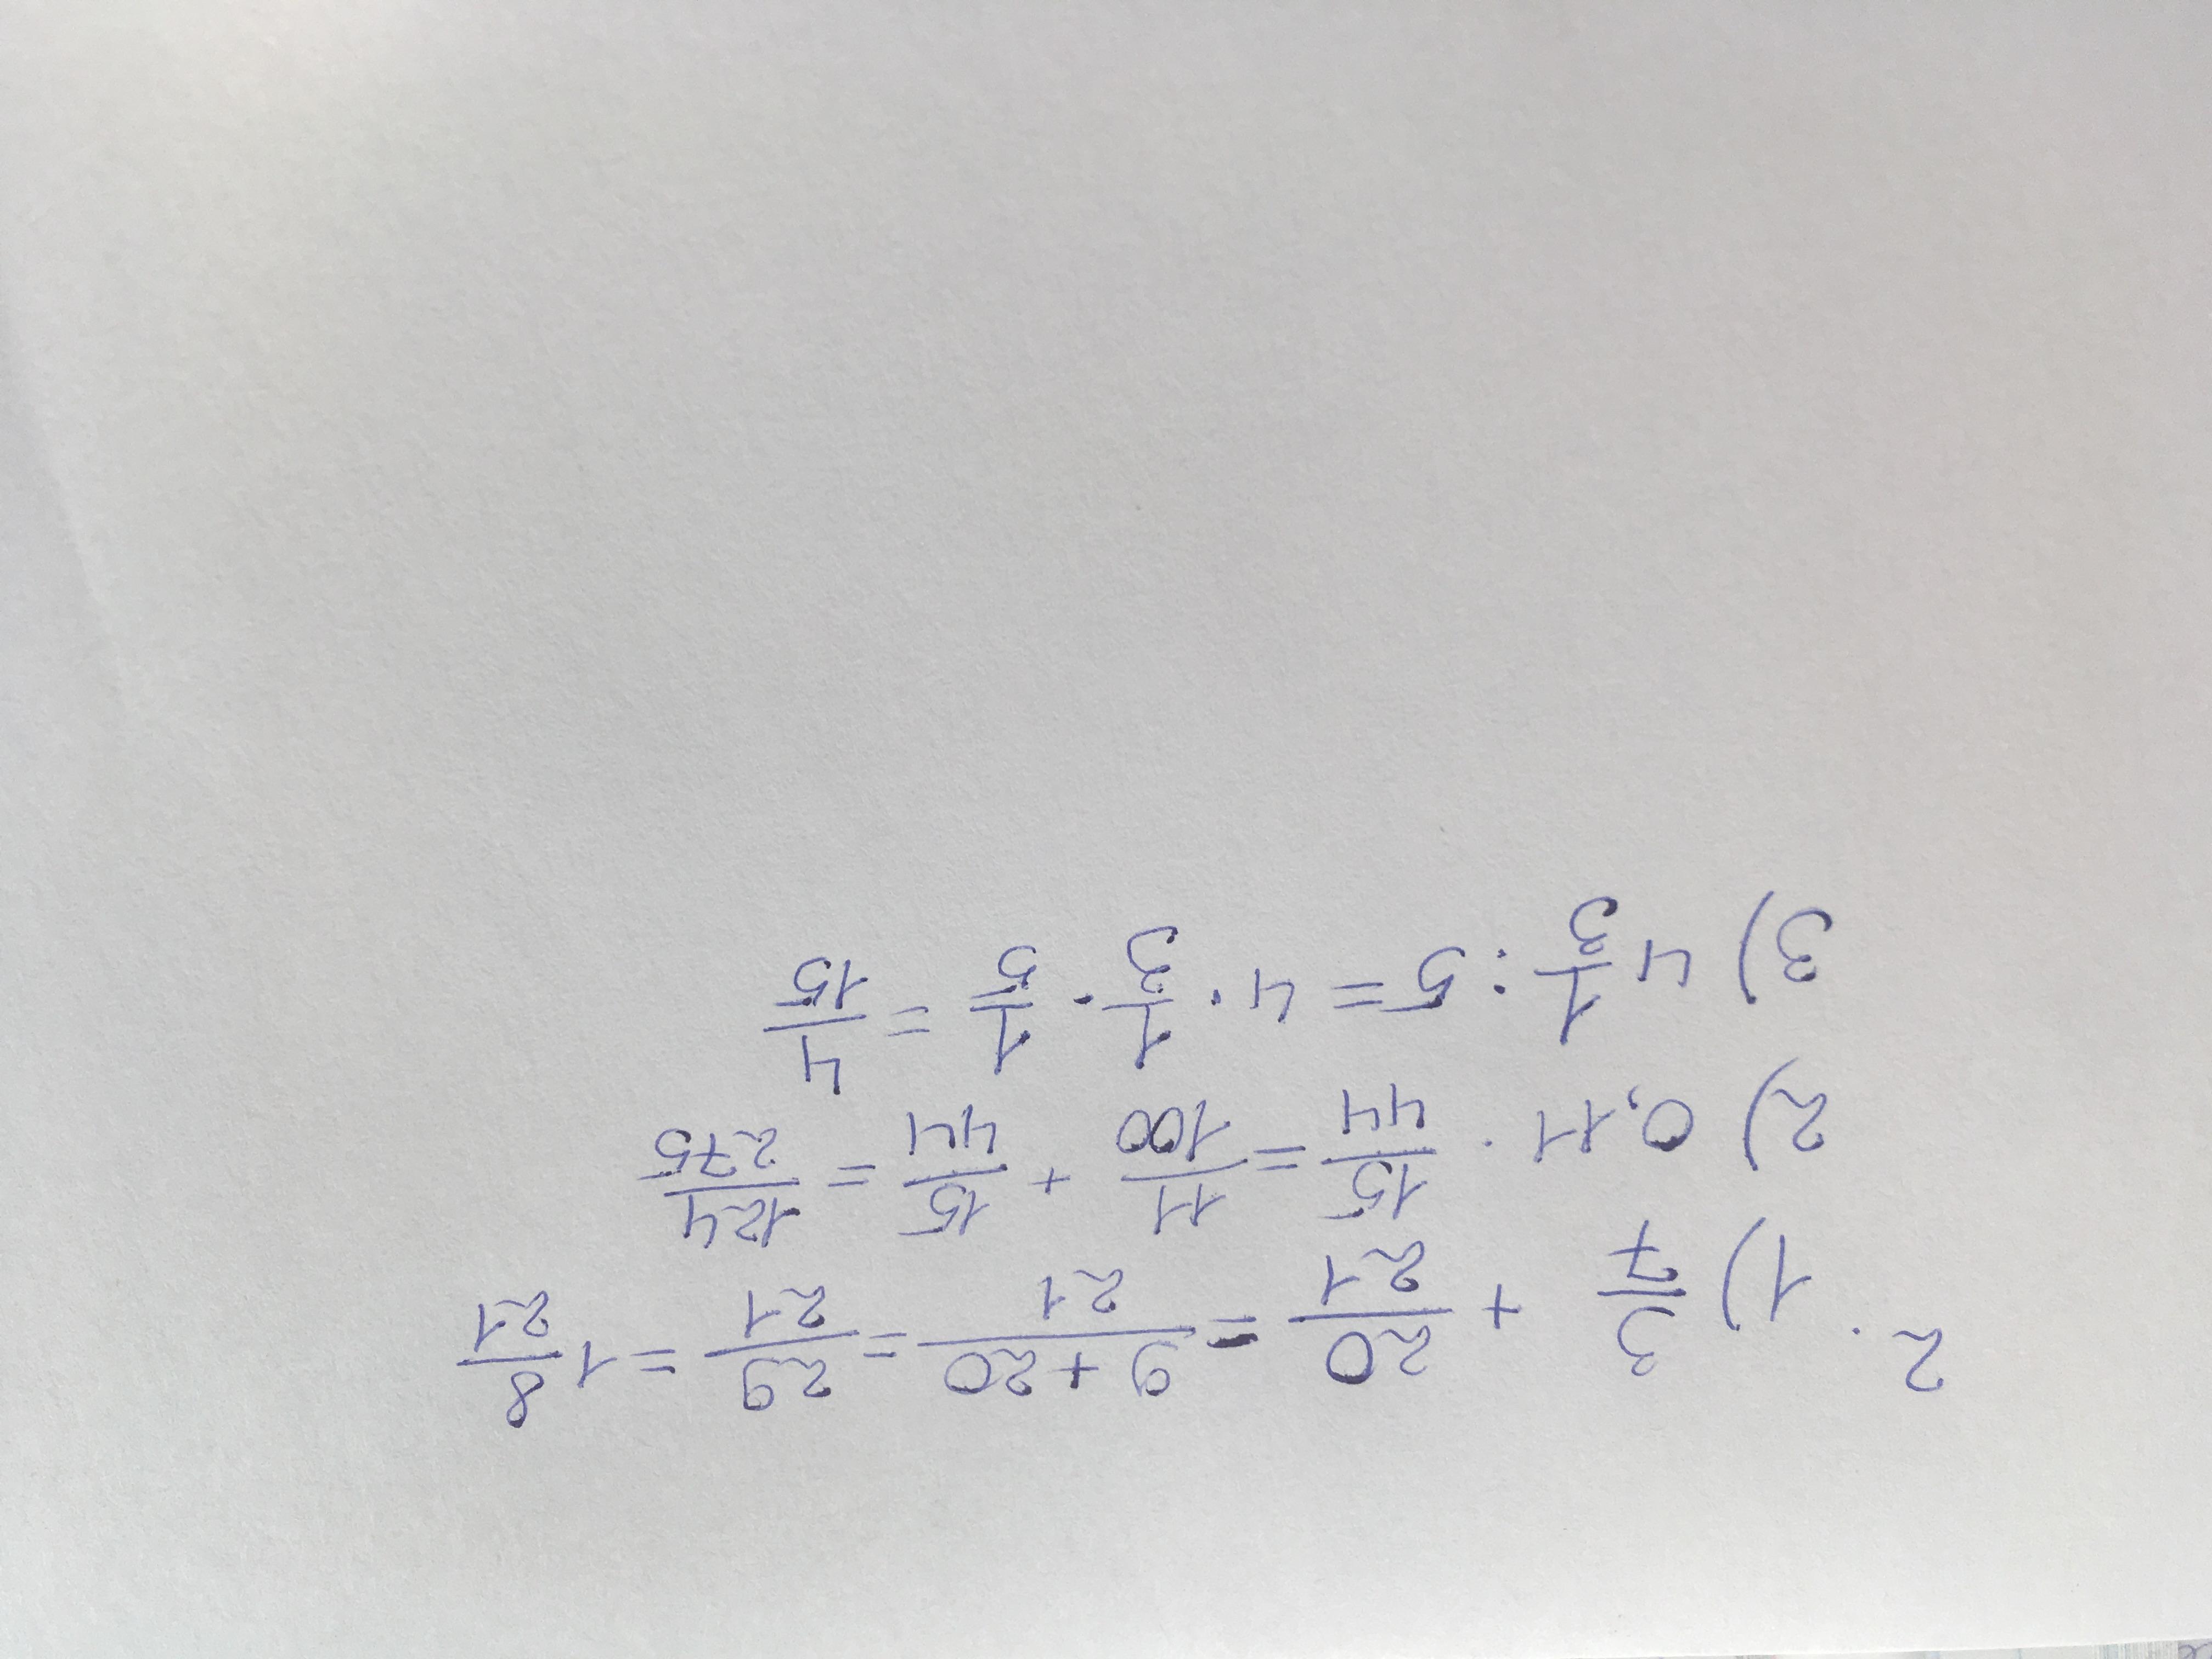 2. 1) 3/7 + 20/21 = 9+20/21 = 29/21 = 1 8/21
2) 0,11 · 15/44 = 11/100 + 15/44 = 124/275
3) 4 1/3 : 5 = 4 · 1/3 · 1/5 = 4/15